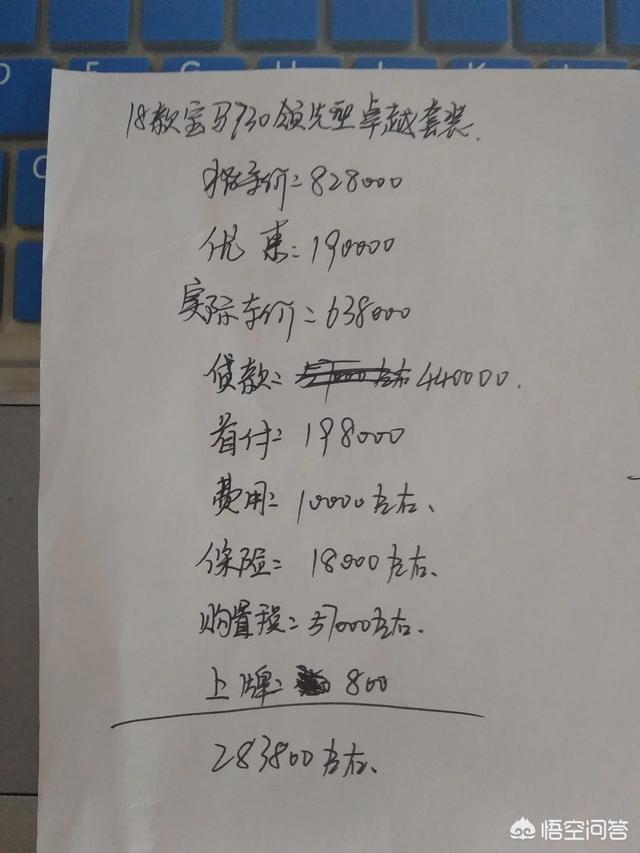 18款宝马730领先型卓越套装.
指导价=828000
优惠:190000
实际车价=638000
贷款=440000.
首付=198000
费用=10000左右、
保险=18000左右.
购置税=57000左右.
上牌:800
283800左右、
悟空问答